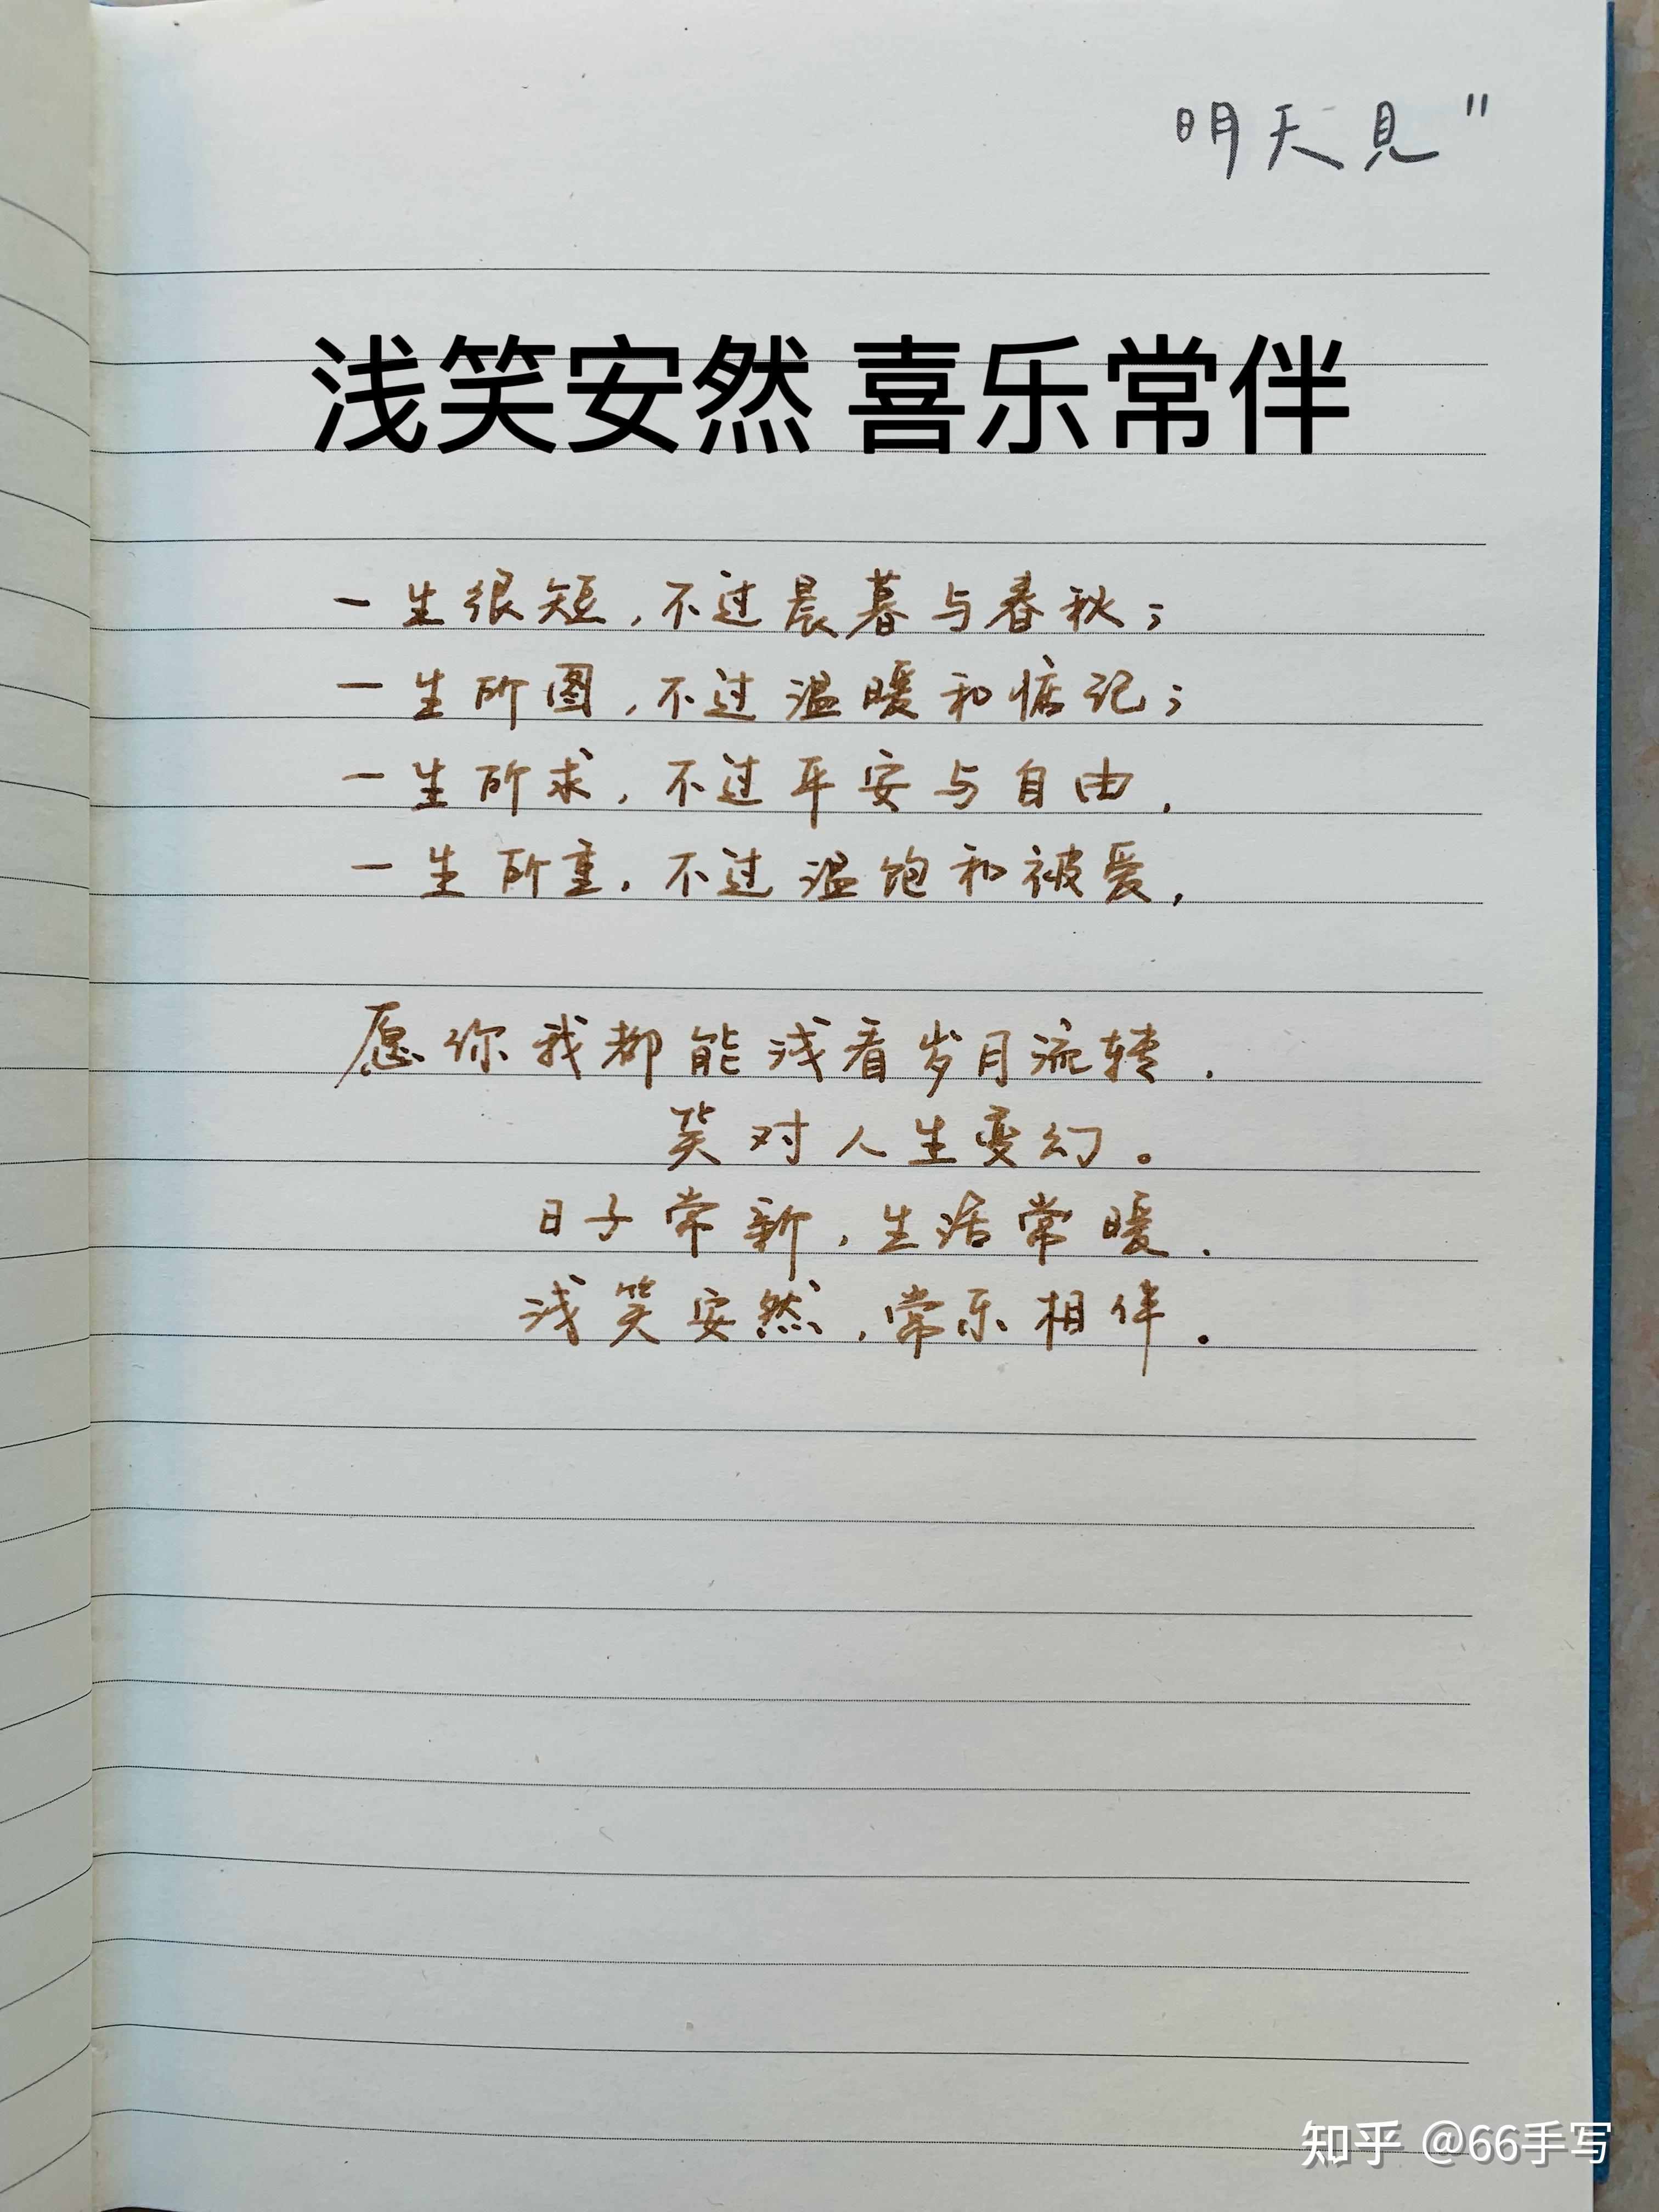 明天見"
浅笑安然 喜乐常伴
一生很短,不过晨暮与春秋;
一生所图,不过温暖和惦记;
一生所求,不过平安与自由.
一生所重,不过温饱和被爱,
愿你我都能浅看岁月流转.
笑对人生变幻。
日子常新,生活常暖.
浅笑安然,常乐相伴.
知乎 @66手写